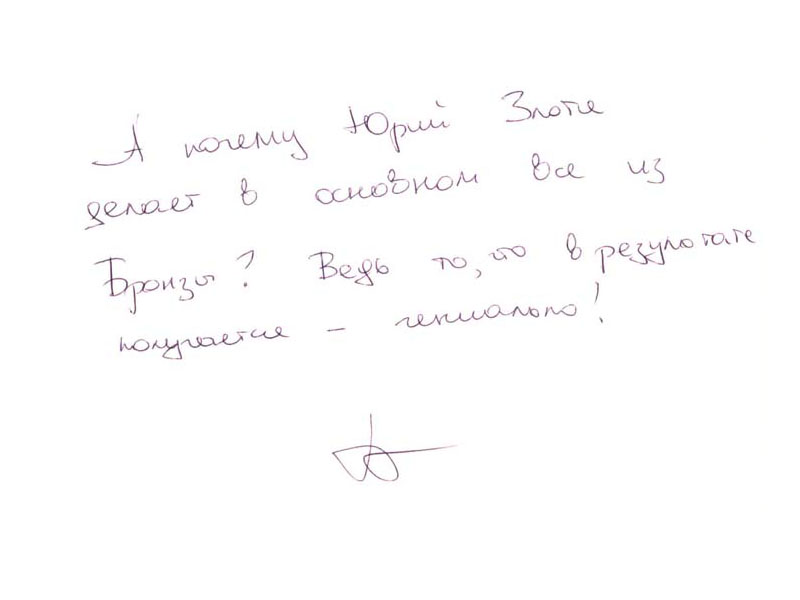 А почему Юрий Злоти
делает в основном все из
Бронзы? Ведь то, что в результате
получается – гениально!